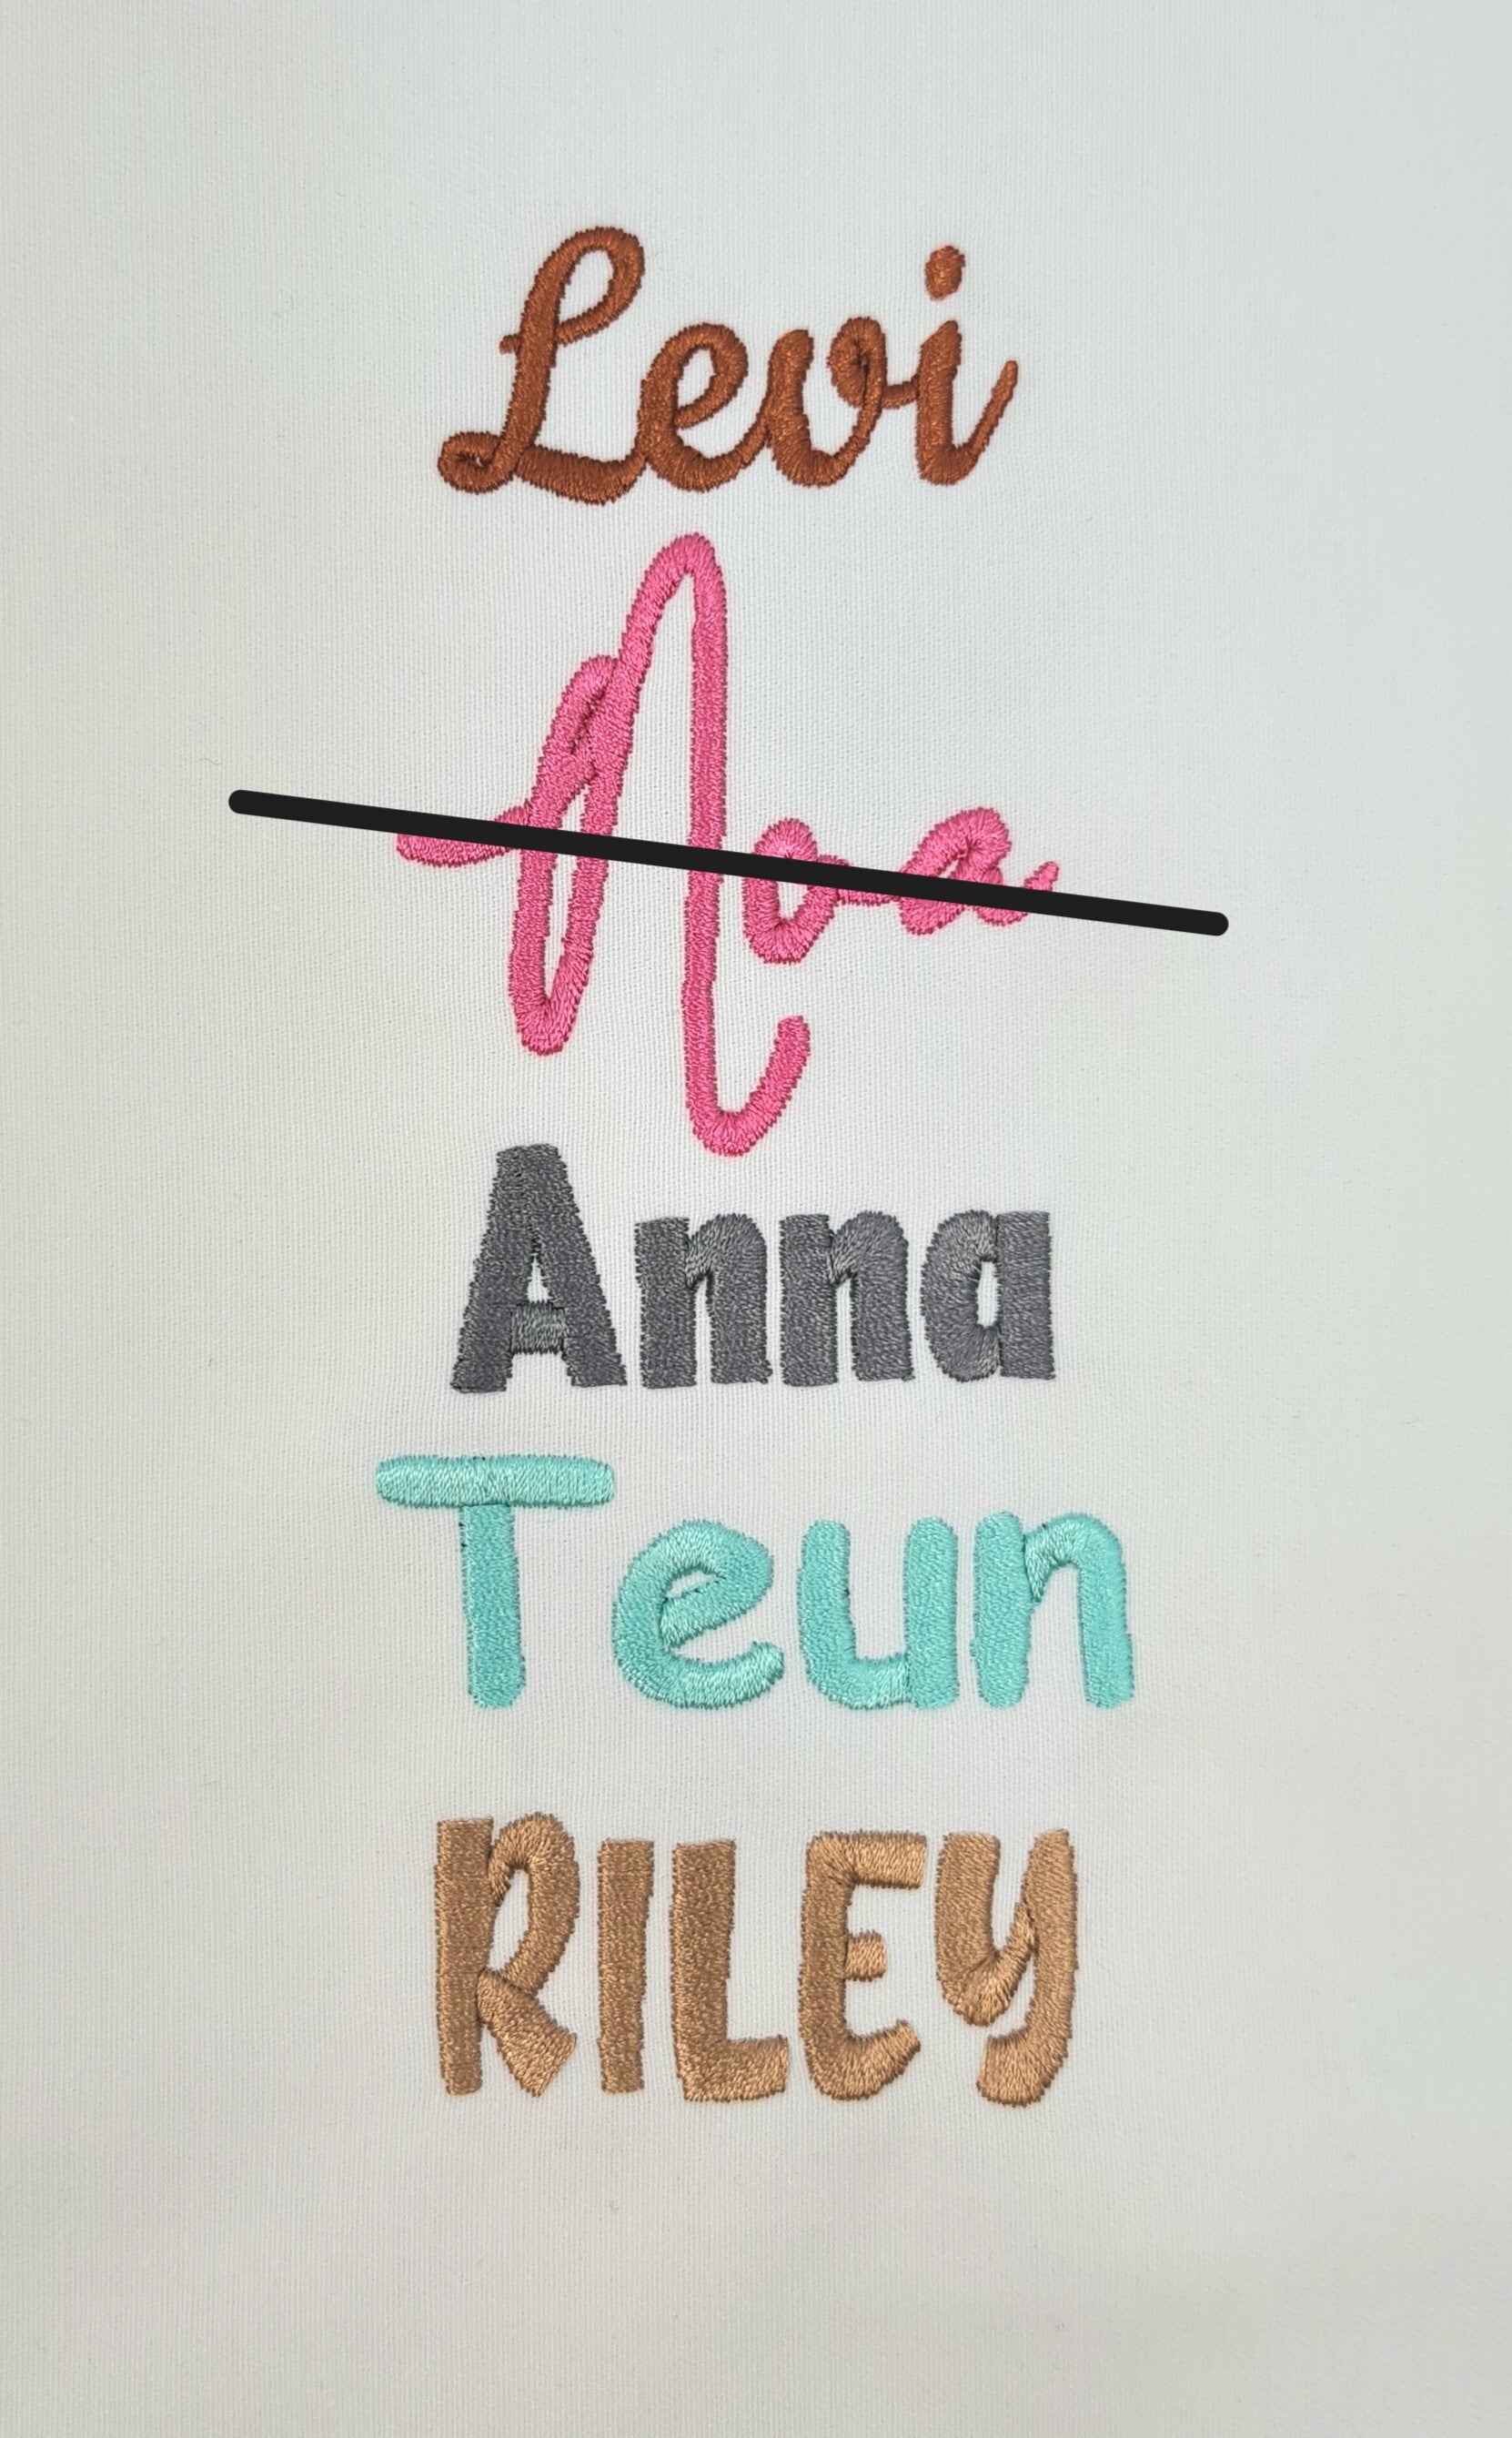 Levi
Noa
Anna
Teun
RILEY